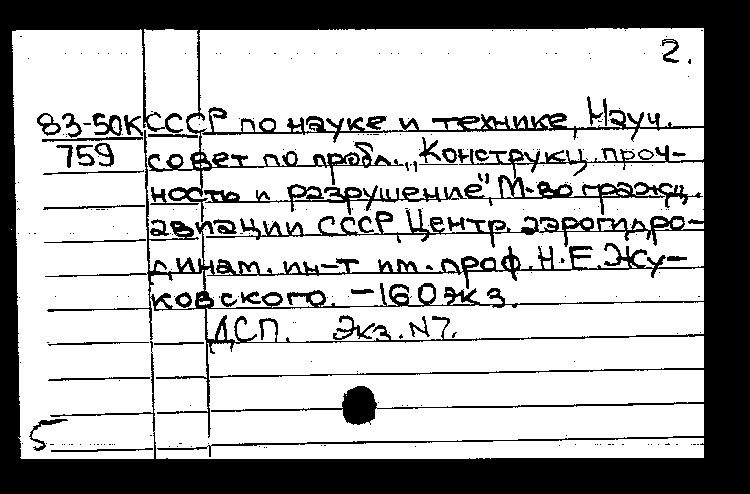 2.
83-50К СССР по науке и технике, Науч.
759 совет по пробл. „Конструкц. проч-
ность и разрушение", М-во гражд.
авиации СССР, Центр. аэрогидро-
динам. ин-т им. проф. Н.Е.Жу-
ковского. -160 экз.
ДСП. Экз. N7.
5